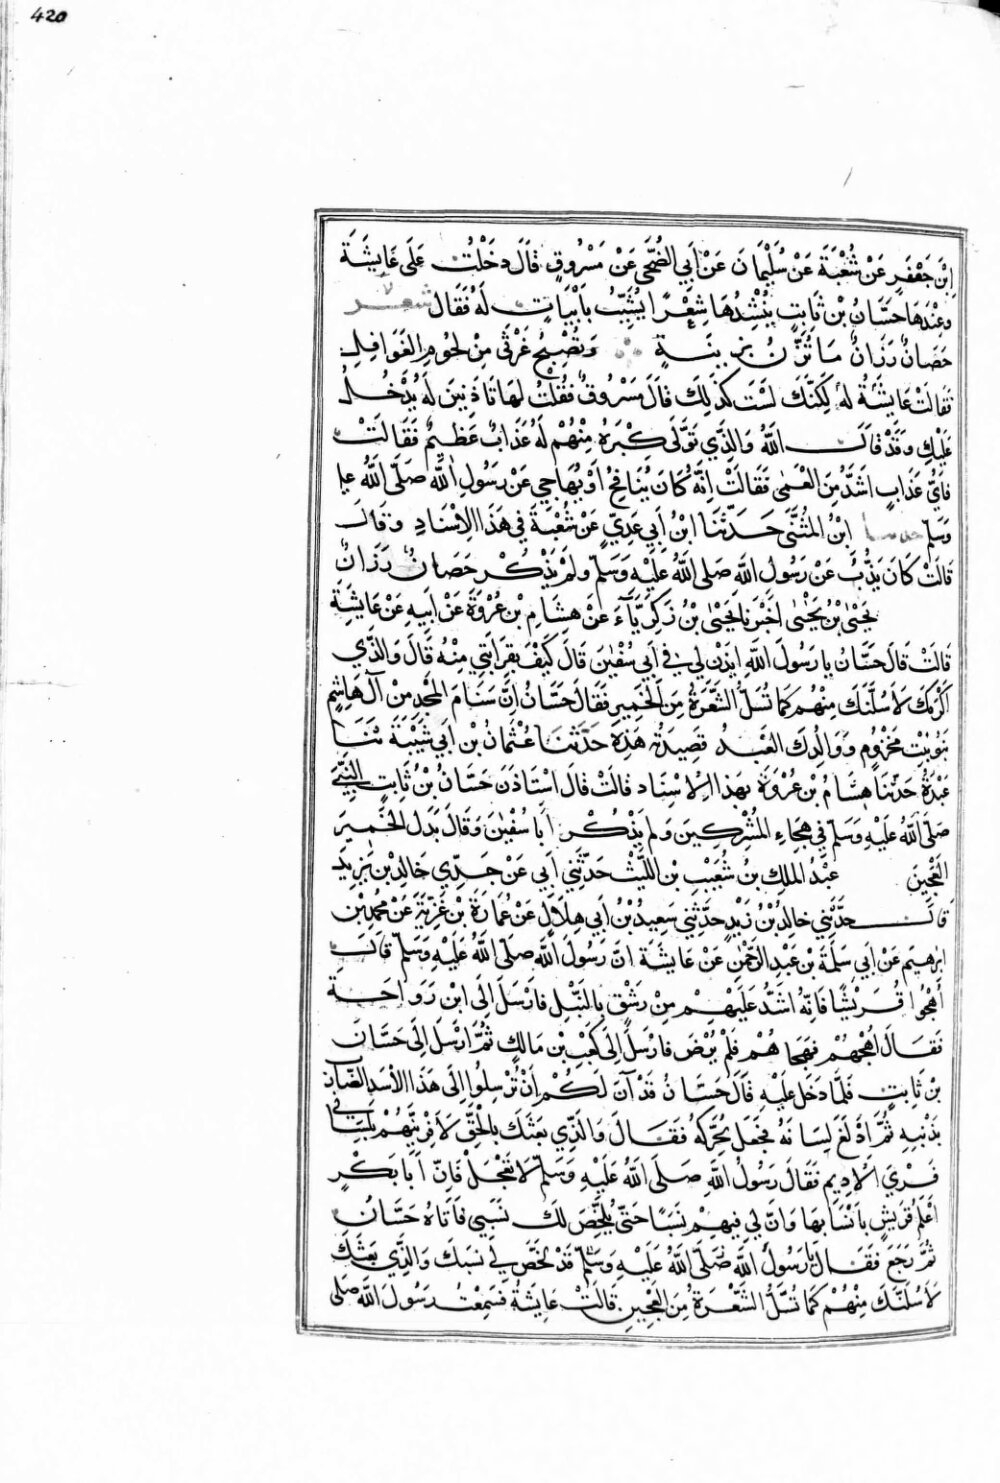 420
ابْنَ جَعْفَرٍ عَنْ شُعْبَةَ عَنْ سُلَيْمَانَ عَنْ أَبِي الضُّحَى عَنْ مَسْرُوقٍ قَالَ دَخَلْتُ عَلَى عَايِشَةَ
وَعِنْدَهَا حَسَّانُ بْنُ ثَابِتٍ يُنْشِدُهَا شِعْرًا يُشَبِّبُ بِأَبْيَاتٍ لَهُ فَقَالَ شعر
حَصَانٌ رَزَانٌ مَا تُزَنُّ بِرِيبَةٍ وَتُصْبِحُ غَرْثَى مِنْ لُحُومِ الغَوَافِلِ
فَقَالَتْ عَايِشَةُ لَهُ لَكِنَّكَ لَسْتَ كَذَلِكَ قَالَ مَسْرُوقٌ فَقُلْتُ لَهَا تَأْذَنِينَ لَهُ يَدْخُلُ
عَلَيْكِ وَقَدْ قَالَ اللَّهُ وَالَّذِي تَوَلَّى كِبْرَهُ مِنْهُمْ لَهُ عَذَابٌ عَظِيمٌ فَقَالَتْ
فَأَيُّ عَذَابٍ أَشَدُّ مِنَ العَمَى فَقَالَتْ إِنَّهُ كَانَ يُنَافِحُ أَوْ يُهَاجِي عَنْ رَسُولِ اللَّهِ صَلَّى اللَّهُ عليه
وَسَلَّمَ حدثنا ابْنُ المُثَنَّى حَدَّثَنَا ابْنُ أَبِي عَدِيٍّ عَنْ شُعْبَةَ فِي هَذَا الإِسْنَادِ وَقَالَ
قَالَتْ كَانَ يَذُبُّ عَنْ رَسُولِ اللَّهِ صَلَّى اللَّهُ عَلَيْهِ وَسَلَّمَ وَلَمْ يَذْكُرْ حَصَانٌ رَزَانٌ
يَحْيَى بْنُ يَحْيَى أَخْبَرَنَا يَحْيَى بْنُ زَكَرِيَّاءَ عَنْ هِشَامِ بْنِ عُرْوَةَ عَنْ أَبِيهِ عَنْ عَايِشَةَ
قَالَتْ قَالَ حَسَّانُ يَا رَسُولَ اللَّهِ ايذَنْ لِي فِي أَبِي سُفْيَنَ قَالَ كَيْفَ بِقَرَابَتِي مِنْهُ قَالَ وَالَّذِي
أَكْرَمَكَ لَأَسُلَّنَّكَ مِنْهُمْ كَمَا تُسَلُّ الشَّعَرَةُ مِنَ الخَمِيرِ فَقَالَ حَسَّانُ إِنَّ سَنَامَ المَجْدِ مِنْ آلِ هَاشِمٍ
بَنُو بِنْتِ مَخْزُومٍ وَوَالِدُكَ العَبْدُ قَصِيدَتُهُ هَذِهِ حَدَّثَنَا عُثْمَانُ بْنُ أَبِي شَيْبَةَ ثَنَا
عَبْدَةُ حَدَّثَنَا هِشَامُ بْنُ عُرْوَةَ بِهَذَا الإِسْنَادِ قَالَتْ قَالَ اسْتَأْذَنَ حَسَّانُ بْنُ ثَابِتٍ النَّبِيَّ
صَلَّى اللَّهُ عَلَيْهِ وَسَلَّمَ فِي هِجَاءِ المُشْرِكِينَ وَلَمْ يَذْكُرْ أَبَا سُفْيَنَ وَقَالَ بَدَلَ الخَمِيرِ
العَجِينِ عَبْدُ المَلِكِ بْنُ شُعَيْبِ بْنِ اللَّيْثِ حَدَّثَنِي أَبِي عَنْ جَدِّي خَالِدِ بْنِ يَزِيدَ
قَالَ حَدَّثَنِي خَالِدُ بْنُ زَيْدٍ حَدَّثَنِي سَعِيدُ بْنُ أَبِي هِلَالٍ عَنْ عُمَارَةَ بْنِ غَزِيَّةَ عَنْ مُحَمَّدِ بْنِ
ابرهيم عَنْ أَبِي سَلَمَةَ بْنِ عَبْدِ الرَّحْمَنِ عَنْ عَايِشَةَ أَنَّ رَسُولَ اللَّهِ صَلَّى اللَّهُ عَلَيْهِ وَسَلَّمَ قَالَ
اهْجُوا قُرَيْشًا فَإِنَّهُ أَشَدُّ عَلَيْهِمْ مِنْ رَشْقٍ بِالنَّبْلِ فَأَرْسَلَ إِلَى ابْنِ رَوَاحَةَ
فَقَالَ اهْجُهُمْ فَهَجَاهُمْ فَلَمْ يُرْضِ فَأَرْسَلَ إِلَى كَعْبِ بْنِ مَالِكٍ ثُمَّ أَرْسَلَ إِلَى حَسَّانَ
بْنِ ثَابِتٍ فَلَمَّا دَخَلَ عَلَيْهِ قَالَ حَسَّانُ قَدْ آنَ لَكُمْ أَنْ تُرْسِلُوا إِلَى هَذَا الأَسَدِ الضَّارِبِ
بِذَنَبِهِ ثُمَّ أَدْلَعَ لِسَانَهُ فَجَعَلَ يُحَرِّكُهُ فَقَالَ وَالَّذِي بَعَثَكَ بِالحَقِّ لَأَفْرِيَنَّهُمْ بِلِسَانِي
فَرْيَ الأَدِيمِ فَقَالَ رَسُولُ اللَّهِ صَلَّى اللَّهُ عَلَيْهِ وَسَلَّمَ لَا تَعْجَلْ فَإِنَّ أَبَا بَكْرٍ
أَعْلَمُ قُرَيْشٍ بِأَنْسَابِهَا وَإِنَّ لِي فِيهِمْ نَسَبًا حَتَّى يُلَخِّصَ لَكَ نَسَبِي فَأَتَاهُ حَسَّانُ
ثُمَّ رَجَعَ فَقَالَ يَا رَسُولَ اللَّهِ صَلَّى اللَّهُ عَلَيْهِ وَسَلَّمَ قَدْ لَخَّصَ لِي نَسَبَكَ وَالَّذِي بَعَثَكَ
لَأَسُلَّنَّكَ مِنْهُمْ كَمَا تُسَلُّ الشَّعْرَةُ مِنَ العَجِينِ قَالَتْ عَايِشَةُ فَسَمِعْتُ رَسُولَ اللَّهِ صَلَّى